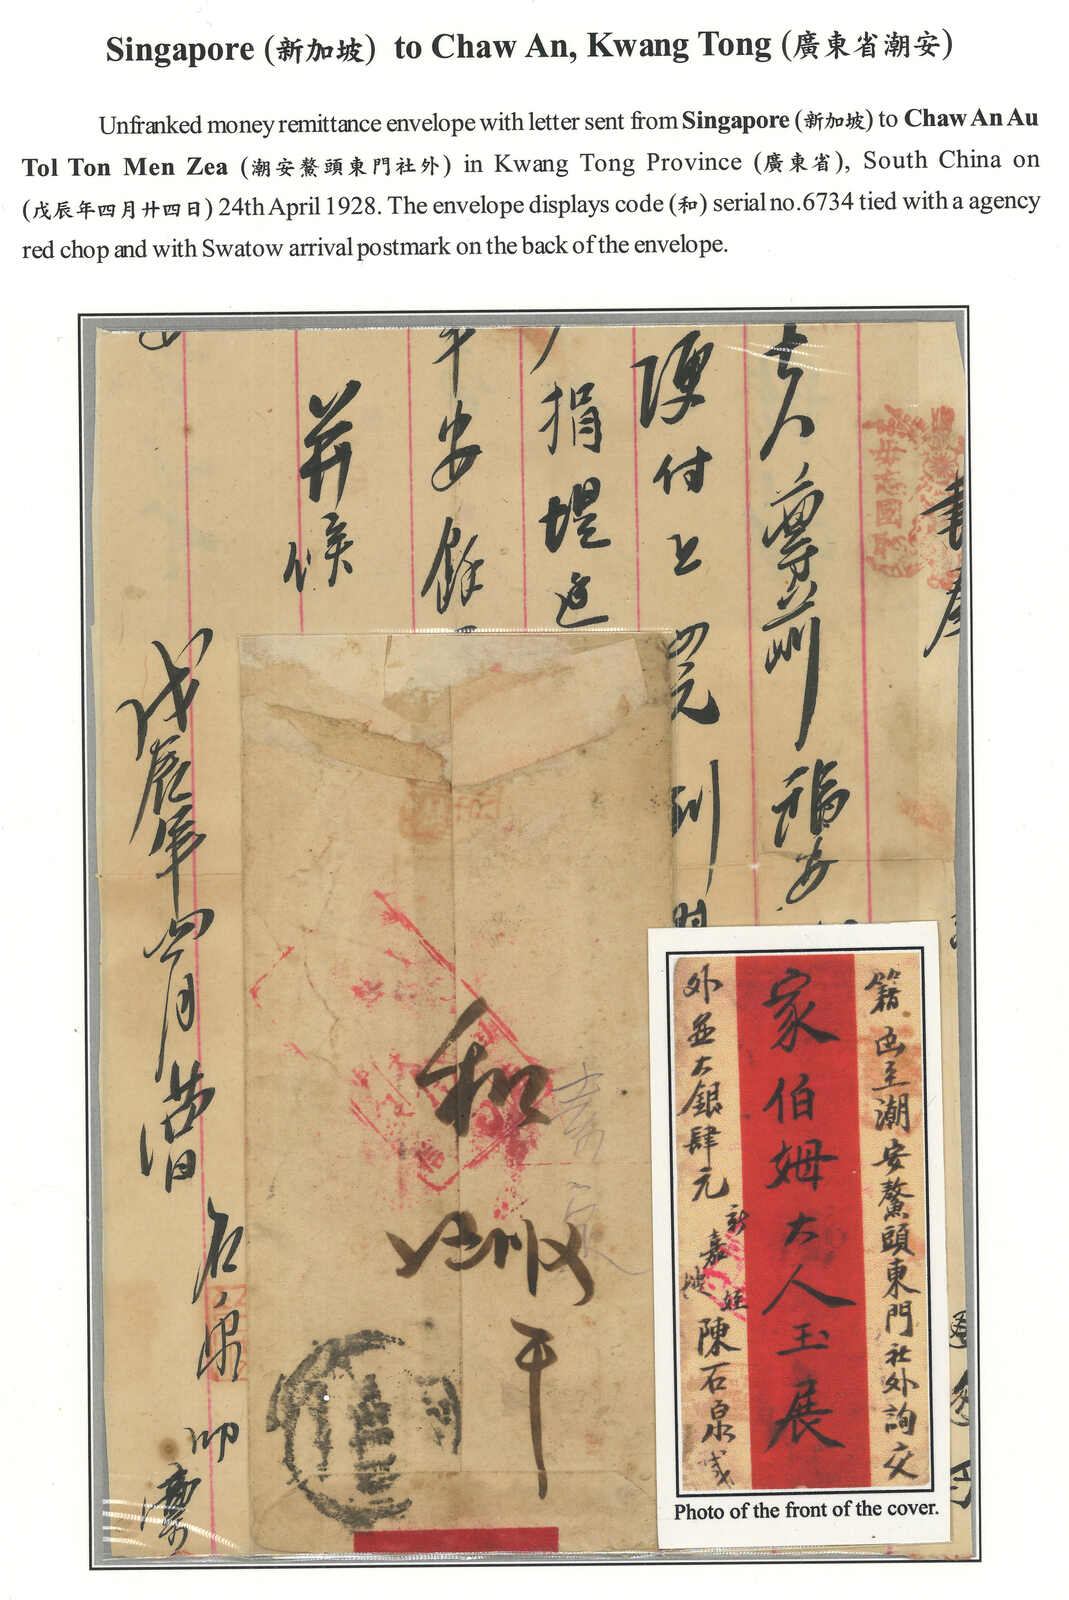 Singapore (新加坡) to Chaw An, Kwang Tong (廣東省潮安)
Unfranked money remittance envelope with letter sent from Singapore (新加坡) to Chaw An Au
Tol Ton Men Zea (潮安鰲頭東門社外) in Kwang Tong Province (廣東省), South China on
(戊辰年四月廿四日) 24th April 1928. The envelope displays code (和) serial no.6734 tied with a agency
red chop and with Swatow arrival postmark on the back of the envelope.
大人尊前福安
便付上四元到時
捐堤
平安餘
并候
戊辰年四月廿四日
石泉
毋忘國恥
和
籍函至潮安鰲頭東門社外詢交
家伯姆大人玉展
外並大銀肆元
新嘉坡
姪陳石泉
Photo of the front of the cover.